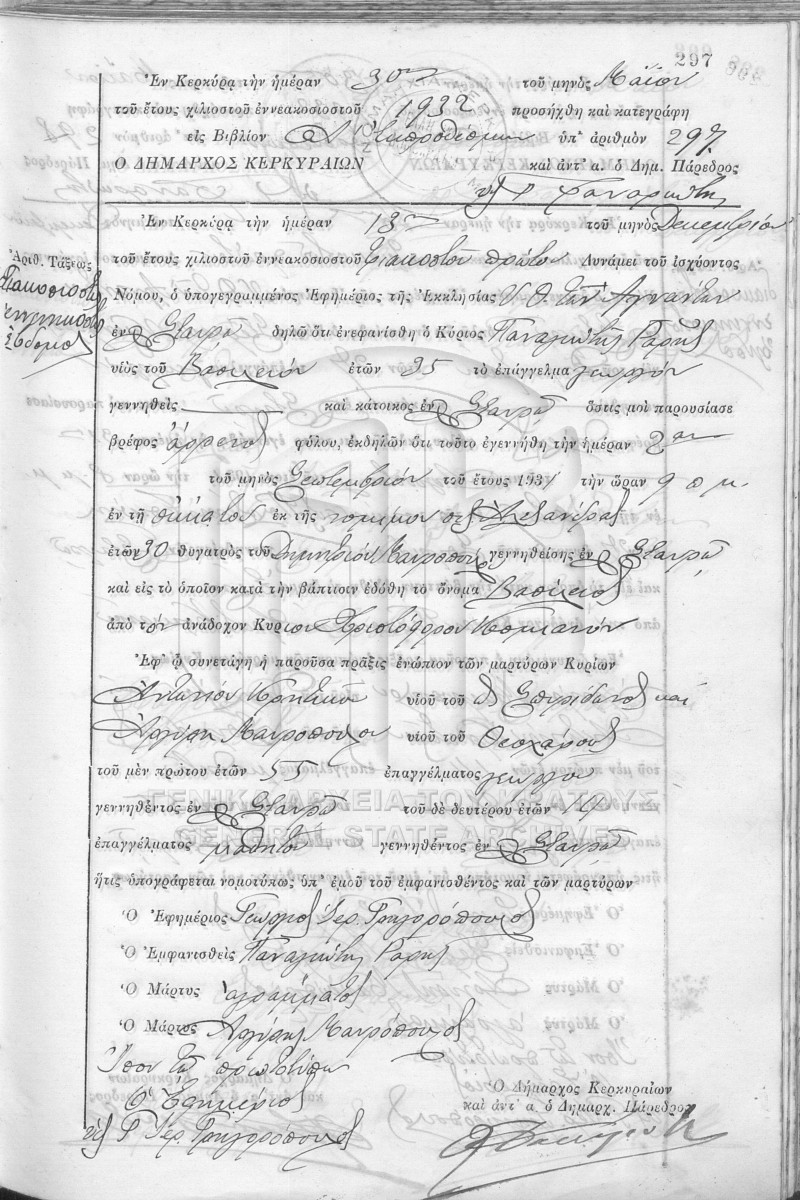 297
Ἐν Κερκύρᾳ τὴν ἡμέραν 30ην τοῦ μηνὸς Μαΐου
τοῦ ἔτους χιλιοστοῦ ἐννεακοσιοστοῦ 1932 προσήχθη καὶ κατεγράφη
εἰς Βιβλίον ὑπ' ἀριθμὸν 297
Ο ΔΗΜΑΡΧΟΣ ΚΕΡΚΥΡΑΙΩΝ καὶ ἀντ' α. ὁ Δημ. Πάρεδρος
Ἐν Κερκύρᾳ τὴν ἡμέραν 13ην τοῦ μηνὸς Δεκεμβρίου
Ἀριθ. Τάξεως
τοῦ ἔτους χιλιοστοῦ ἐννεακοσιοστοῦ τριακοστοῦ πρώτου Δυνάμει τοῦ ἰσχύοντος
Νόμου, ὁ ὑπογεγραμμένος Ἐφημέριος τῆς Ἐκκλησίας Υ. Θ. τῶν Ἁγνάντων
ἐν Σταυρῷ δηλῶ ὅτι ἐνεφανίσθη ὁ Κύριος Παναγιώτης Ραρῆς
υἱὸς τοῦ Βασιλείου ἐτῶν 35 τὸ ἐπάγγελμα γεωργὸν
γεννηθεὶς καὶ κάτοικος ἐν Σταυρῷ ὅστις μοὶ παρουσίασε
βρέφος ἄρρενος φύλου, ἐκδηλῶν ὅτι τοῦτο ἐγεννήθη τὴν ἡμέραν 2αν
τοῦ μηνὸς Σεπτεμβρίου τοῦ ἔτους 1931 τὴν ὥραν 9 π μ.
ἐν τῇ οἰκίᾳ του ἐκ τῆς νομίμου συζ Ἀλεξάνδρας
ἐτῶν 30 θυγατρὸς τοῦ Δημητρίου Μαυροπούλου γεννηθείσης ἐν Σταυρῷ
καὶ εἰς τὸ ὁποῖον κατὰ τὴν βάπτισιν ἐδόθη τὸ ὄνομα Βασίλειος
ἀπὸ τὸν ἀνάδοχον Κύριον Χριστόφορον
Ἐφ' ᾧ συνετάγη ἡ παροῦσα πρᾶξις ἐνώπιον τῶν μαρτύρων Κυρίων
Ἀντωνίου Κρητικοῦ υἱοῦ τοῦ Σπυρίδωνος καὶ
Ἀργύρη Μαυροπούλου υἱοῦ τοῦ Θεοχάρους
τοῦ μὲν πρώτου ἐτῶν 55 ἐπαγγέλματος γεωργοῦ
γεννηθέντος ἐν Σταυρῷ τοῦ δὲ δευτέρου ἐτῶν 14
ΓΕΝΙΚΑ ΑΡΧΕΙΑ ΤΟΥ ΚΡΑΤΟΥΣ
GENERAL STATE ARCHIVES
ἐπαγγέλματος μαθητοῦ γεννηθέντος ἐν Σταυρῷ
ἥτις ὑπογράφεται νομοτύπως ὑπ' ἐμοῦ τοῦ ἐμφανισθέντος καὶ τῶν μαρτύρων
Ὁ Ἐφημέριος Γεώργιος Ἱερ. Γρηγορόπουλος
Ὁ Ἐμφανισθεὶς Παναγιώτης Ραρῆς
Ὁ Μάρτυς ἀγράμματος
Ὁ Μάρτυς Ἀργύρης Μαυρόπουλος
Ἴσον τῷ πρωτοτύπῳ
Ὁ Ἐφημέριος
Ὁ Δήμαρχος Κερκυραίων
καὶ ἀντ' α. ὁ Δημαρχ. Πάρεδρος
Γ Ἱερ. Γρηγορόπουλος